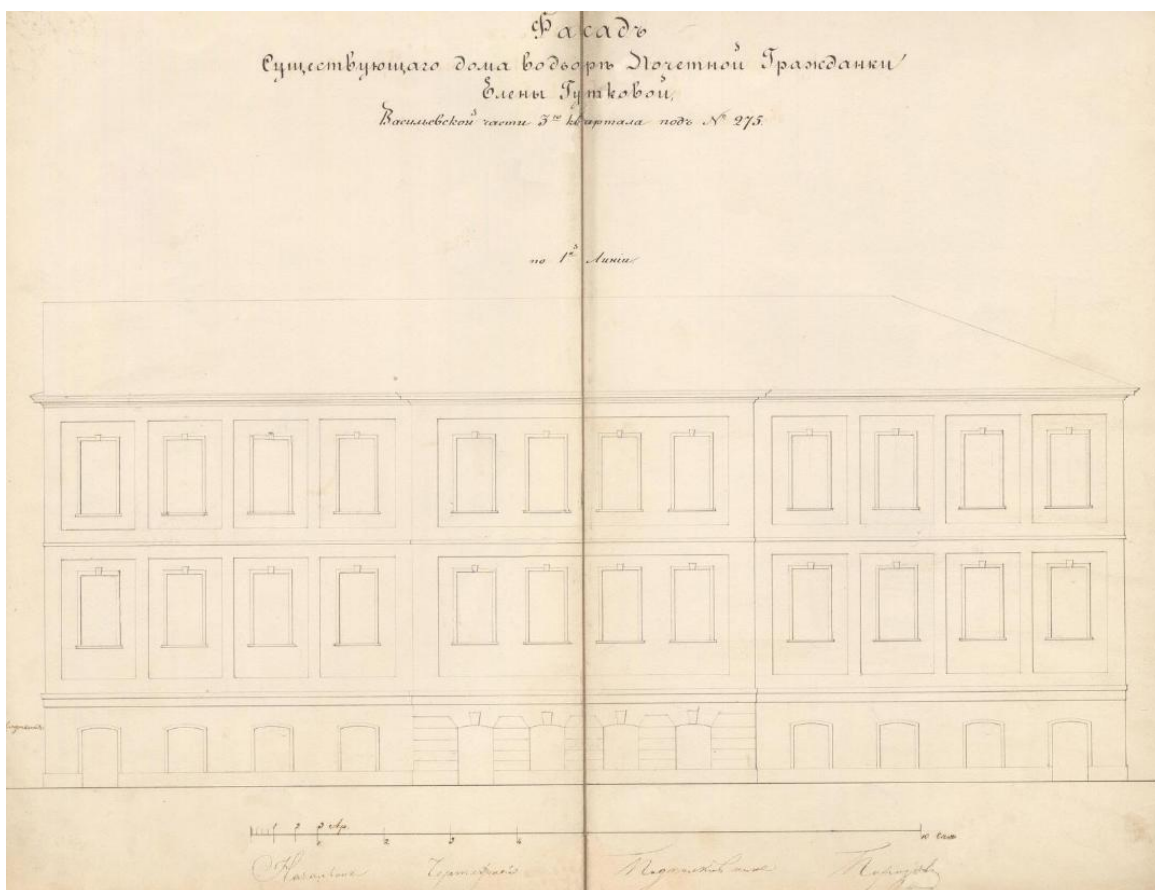 Фасадъ
Существующаго дома водворѣ Почетной Гражданки
Елены Гутковой,
Васильевской части 3го квартала подъ № 275.
по 1й Линіи
1 2 3 Ар.
2 3 4 10 Саж
Начальникъ Чертежной